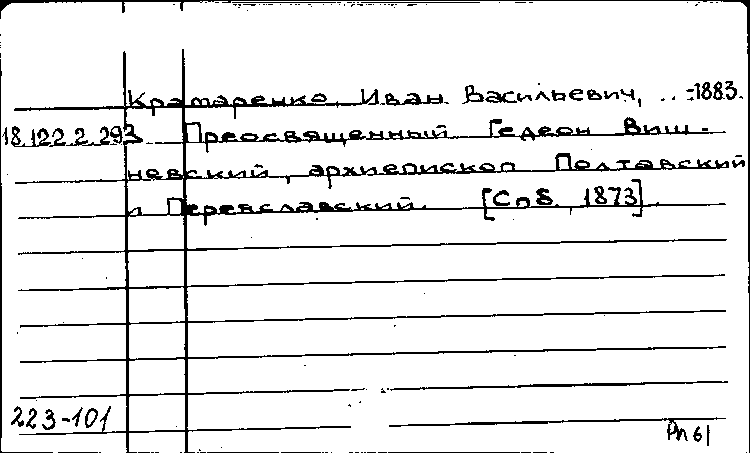 Крамаренко, Иван Васильевич, ..-1883.
18.122.2.293 Преосвященный Гедеон Виш-
невский, архиепископ Полтавский
и Переяславский. [Спб., 1873].
223-101
Рп 61